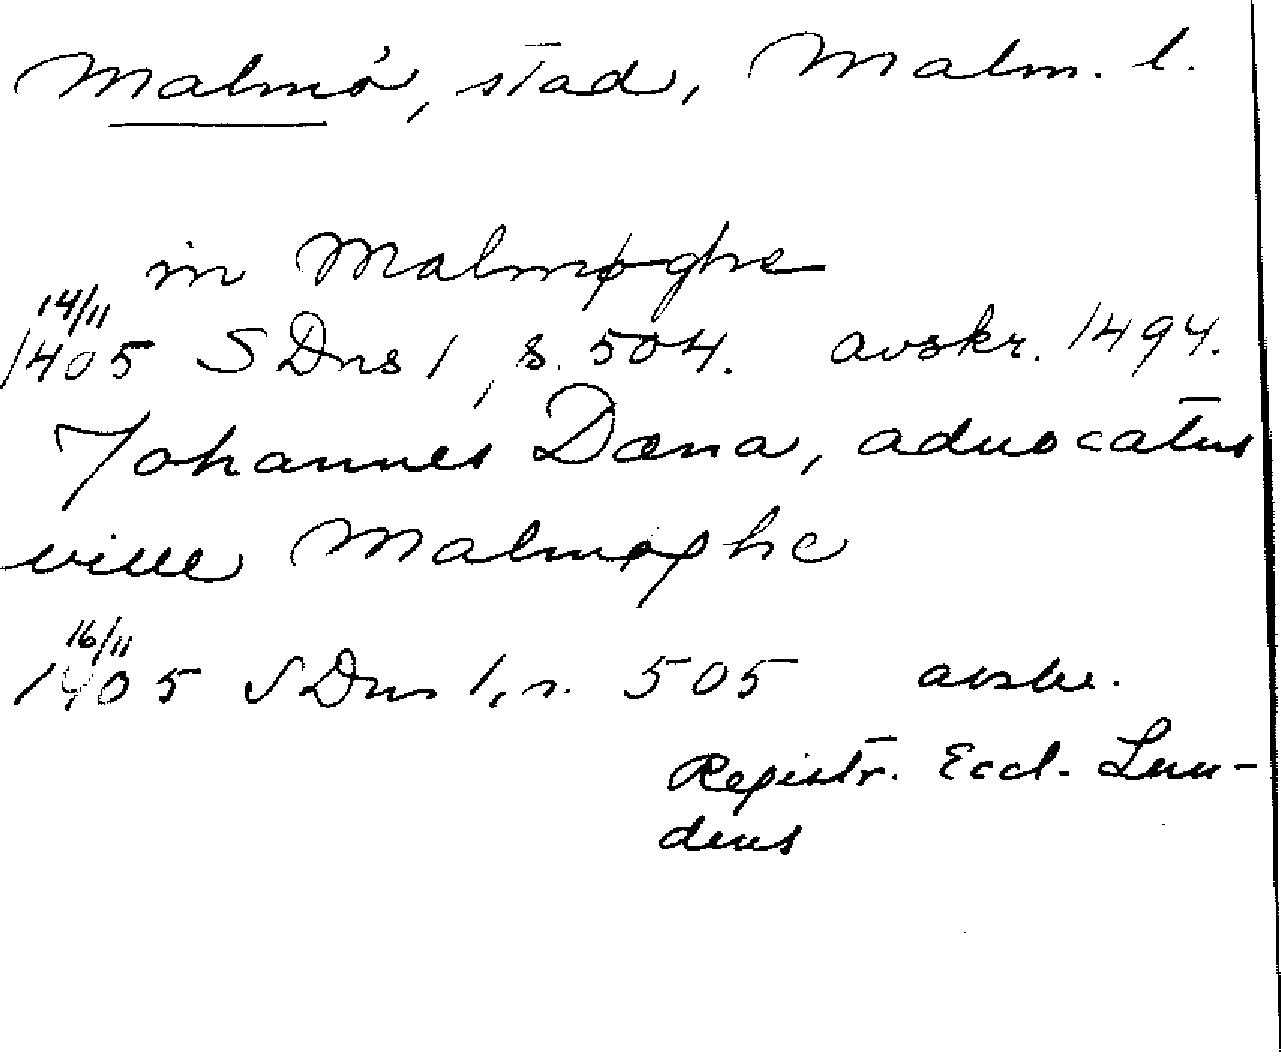 Malmö, stad, Malm. l.
in Malmøghe
14/11
1405 SDns 1, s. 504. avskr. 1494.
Johannes Dæna, aduocatus
ville Malmøghe
16/11
1405 SDns 1, s. 505 avskr.
Registr. Eccl. Lun-
dens